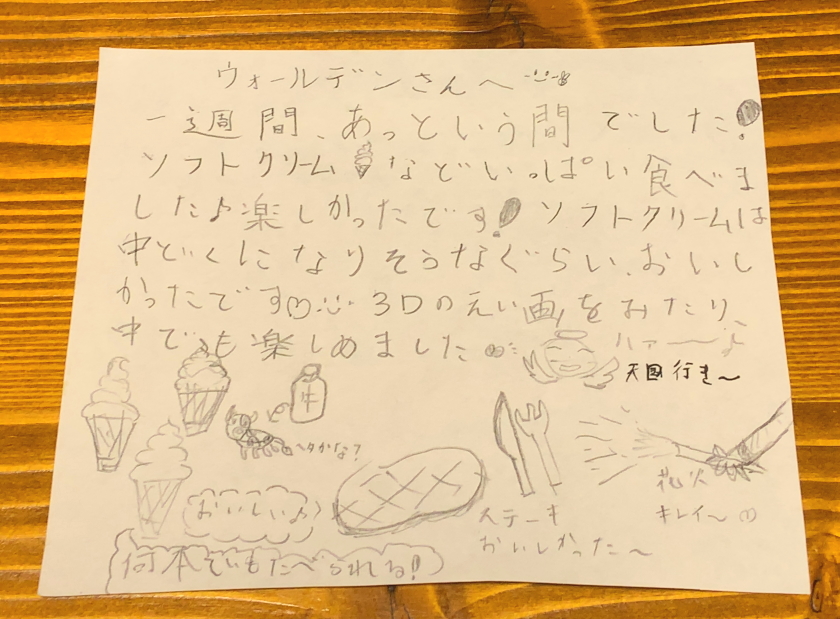 ウォールデンさんへ
一週間、あっという間でした!
ソフトクリームなどいっぱい食べま
した♪楽しかったです!ソフトクリームは
中どくになりそうなぐらい、おいし
かったです♡3Dのえい画をみたり、
中でも楽しめました
ハァ〜〜♪
天国行き〜
牛
ヘタかな?
おいしい♪
何本でもたべられる!!
ステーキ
おいしかった〜
花火
キレイ〜